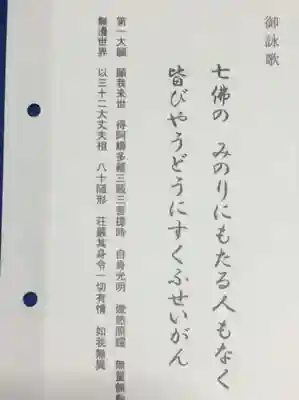 御詠歌
七佛の みのりにもたる人もなく
皆びやうどうにすくふせいがん
第一大願 願我来世 得阿耨多羅三藐三菩提時 自身光明 熾然照曜 無量無数
無邊世界 以三十二大丈夫相 八十随形 荘厳其身令一切有情 如我無異